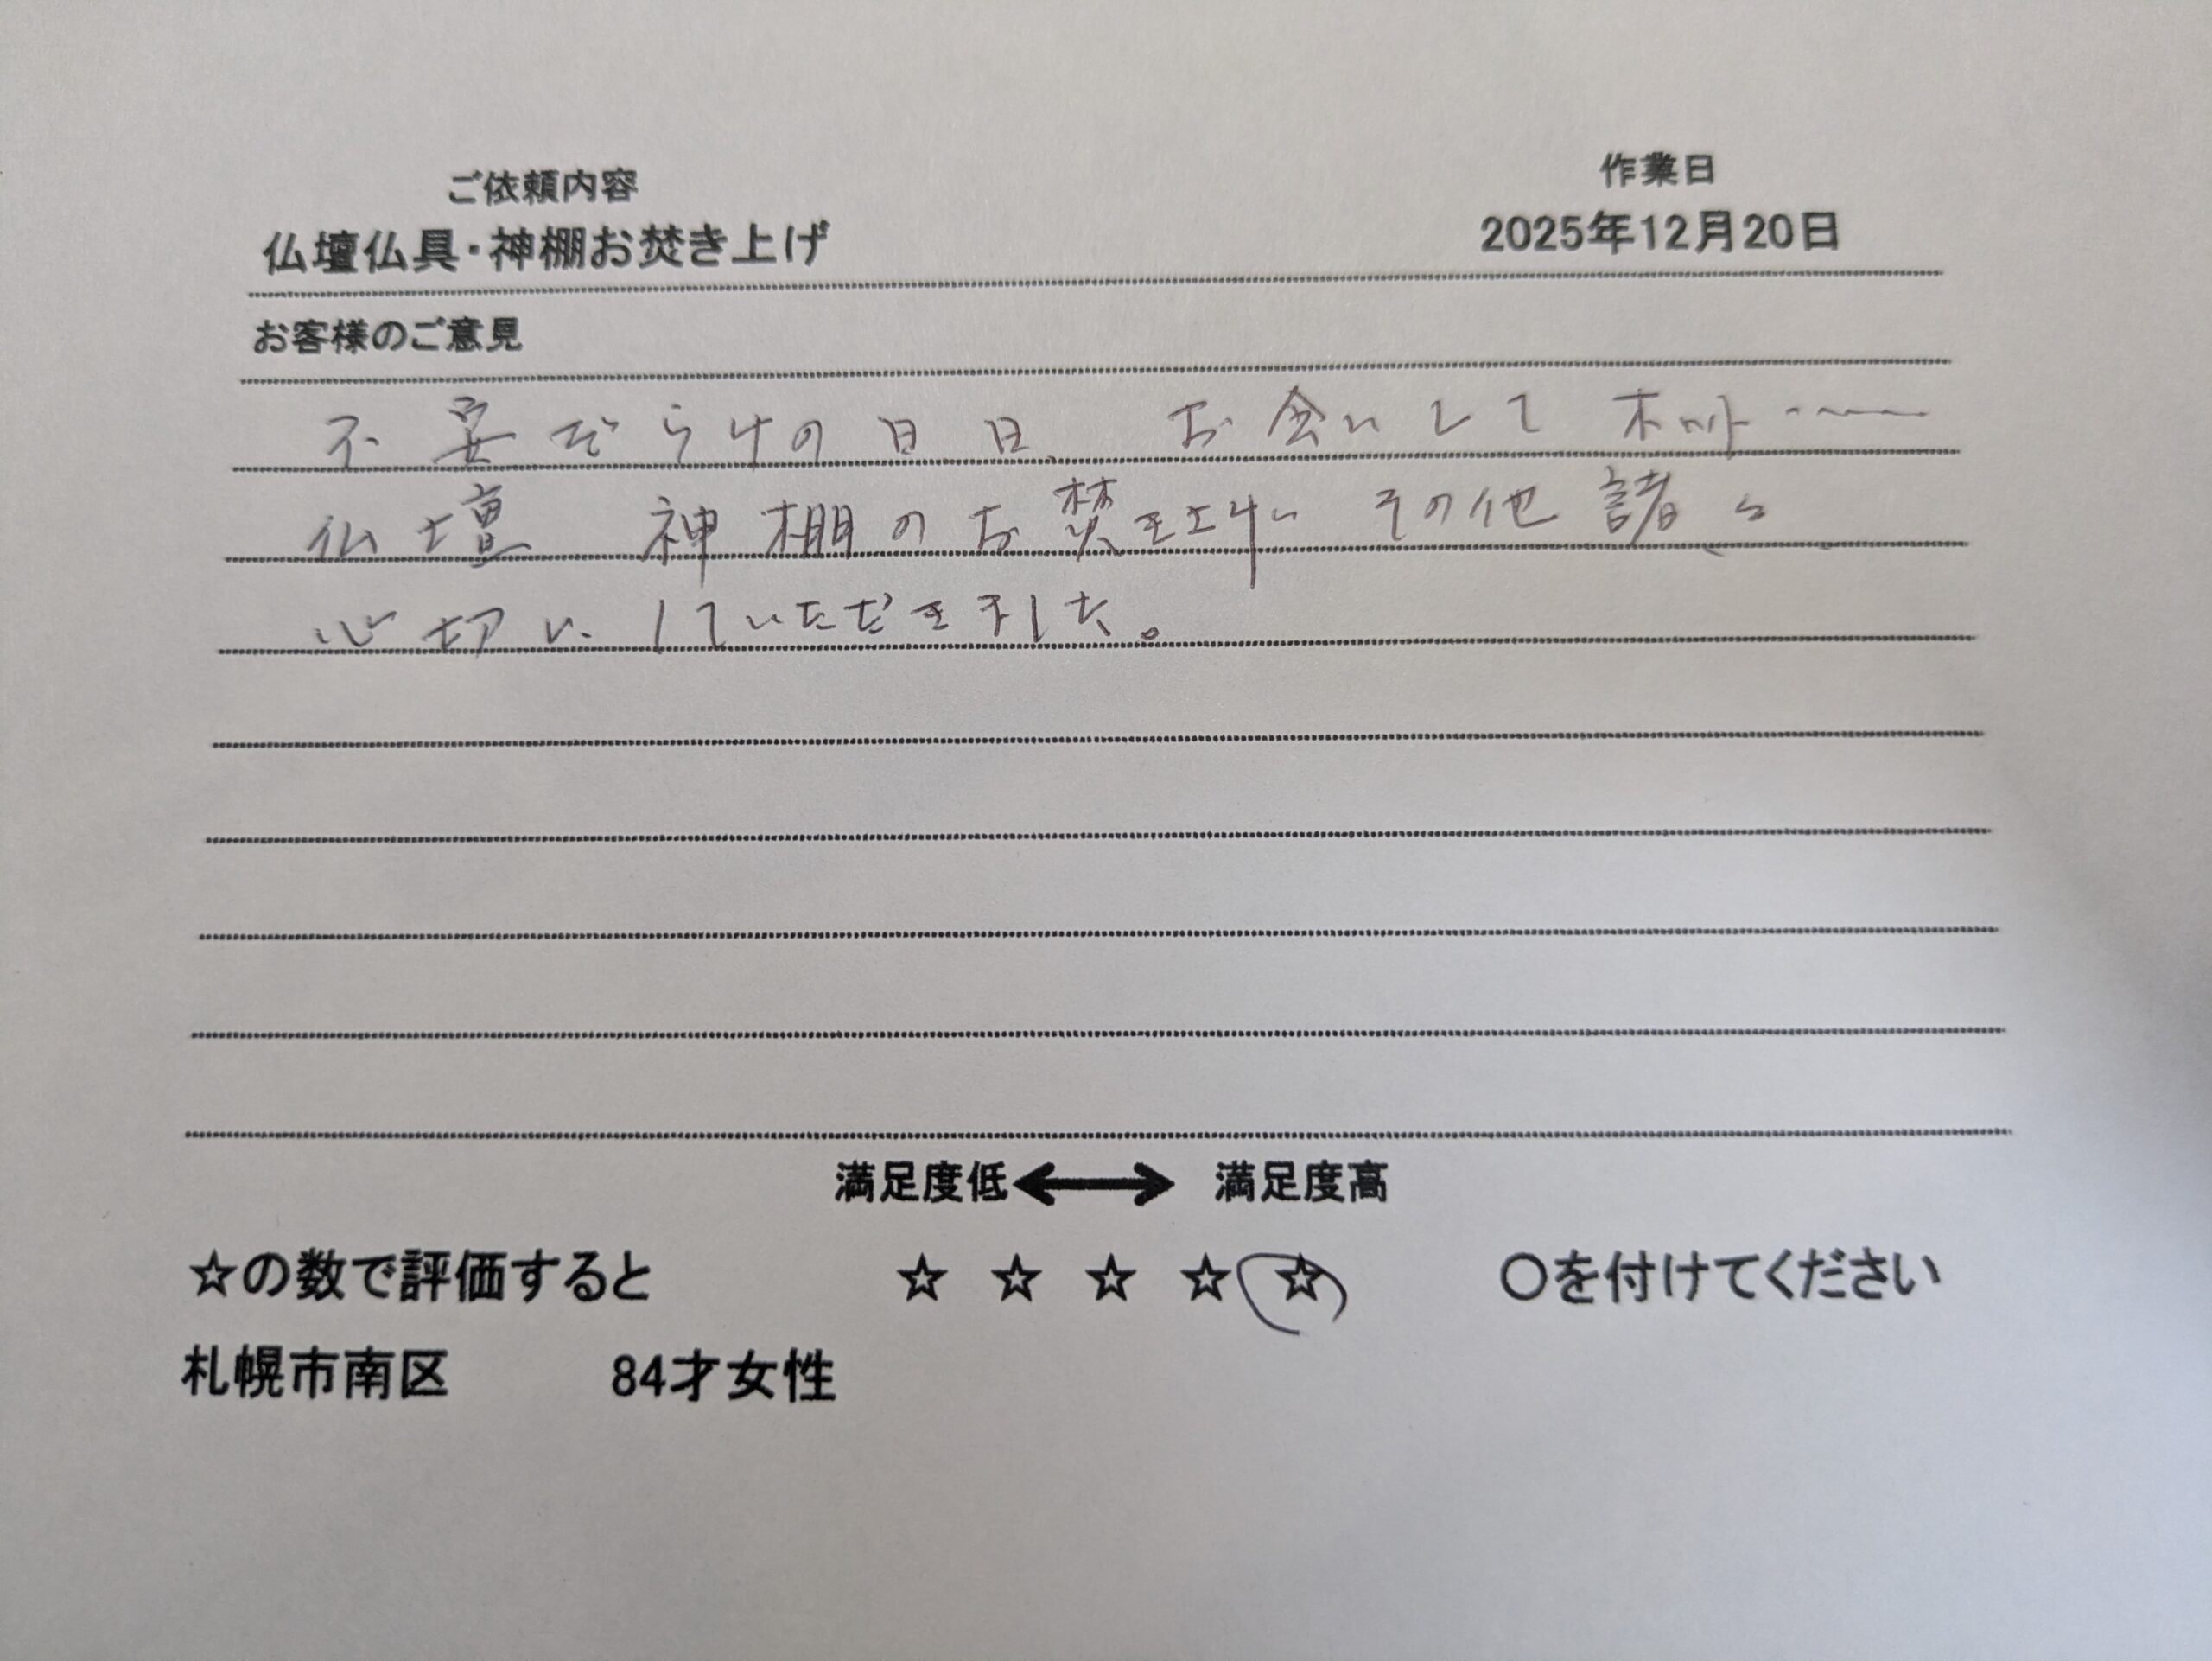 ご依頼内容 作業日
仏壇仏具・神棚お焚き上げ 2025年12月20日
お客様のご意見
不安だらけの日日、お会いして ホット……
仏壇 神棚のお焚き上げ、その他諸々
心切に していただきました。
満足度低 ⟷ 満足度高
☆の数で評価すると ☆ ☆ ☆ ☆ ☆ 〇を付けてください
札幌市南区 84才女性